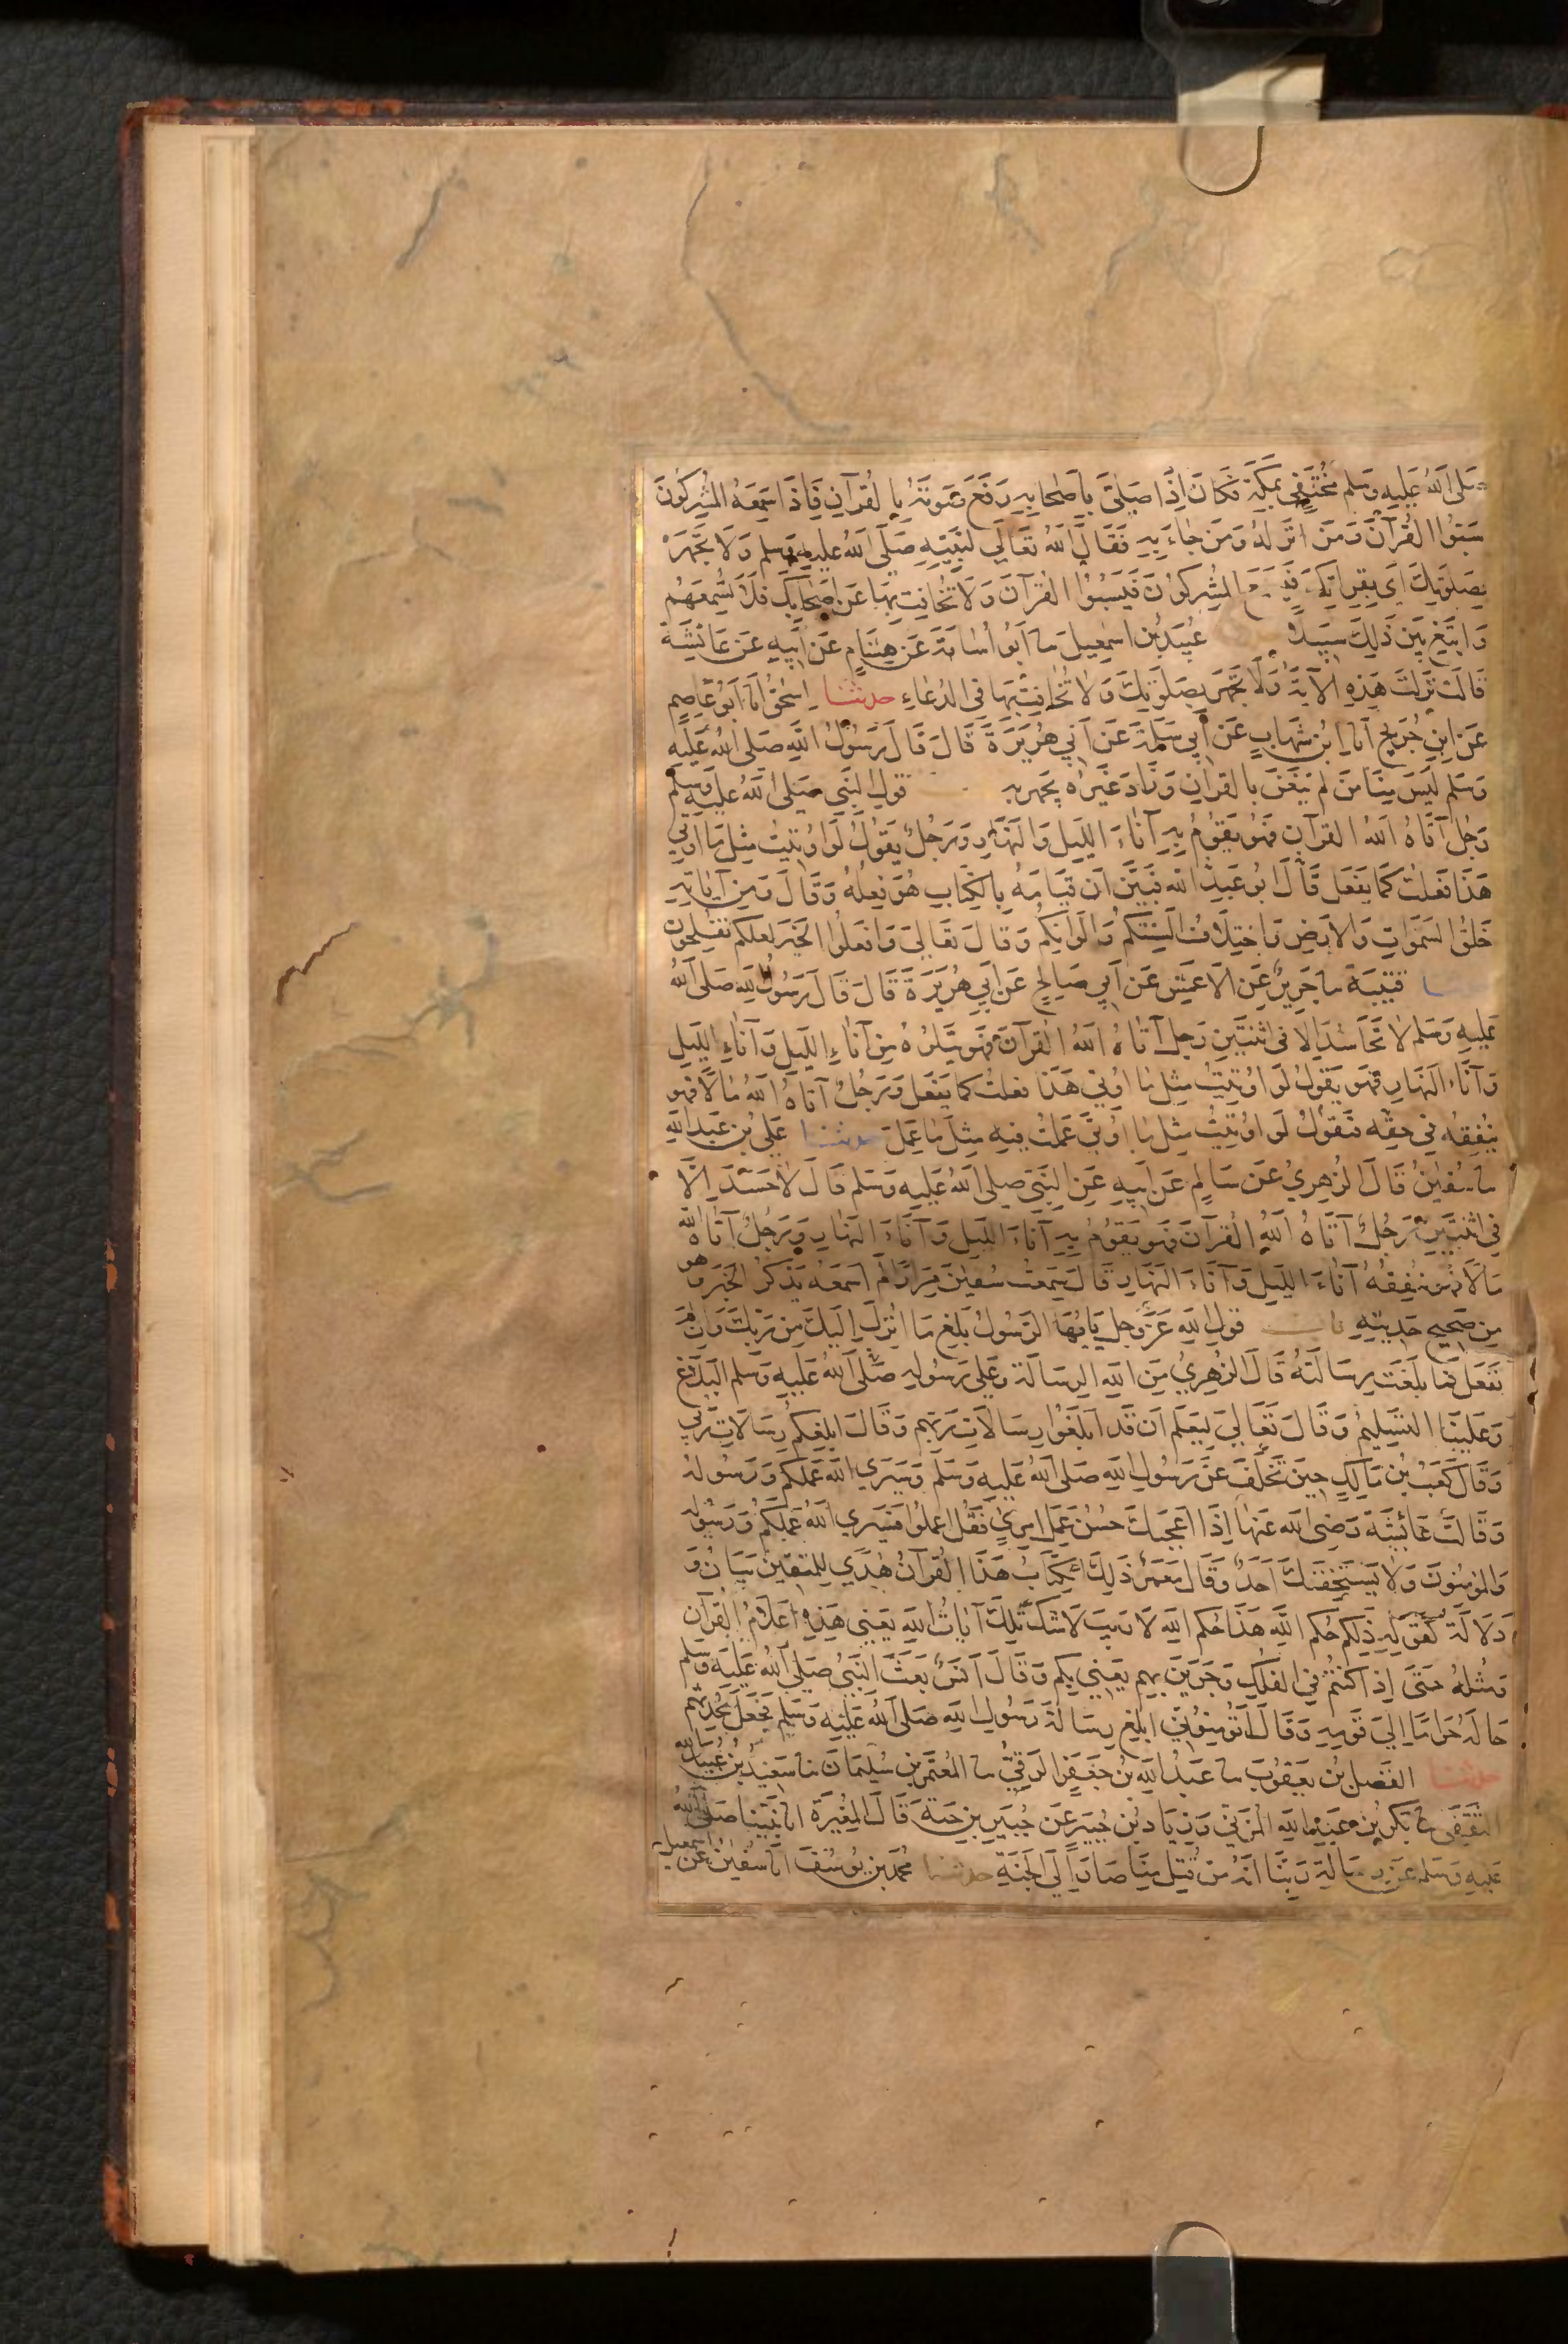 صَلَّى اللهُ عَلَيهِ وَسَلم مُخْتَفٍ بِمَكَّةَ فَكَانَ اِذَا صَلَّىٰ بِأَصْحَابِهِ رَفَعَ صَوتَهُ بِالقُرآنِ فَاِذَا سَمِعَهُ المُشرِكُونَ
سَبُّوا القُرآنَ وَمَن انزلهُ وَمَن جَاءَ بِهِ فَقَالَ اللهُ تَعَالَي لِنَبِيِّهِ صَلَّى اللهُ عَليه وسلم وَلَا تَجْهَرْ
بِصَلَوتِكَ اَي بِقِراتِكَ فَيَسمَعَ المُشرِكُونَ فَيَسُبُّوا القُرآنَ وَلَا تُخَافِت بِهَا عَن اَصحَابِكَ فَلَا تُسمِعهُم
وَابتَغِ بَينَ ذَلِكَ سَبِيلًا عُبَيدُ بن اسمعِيلَ سا اَبُو اُسَامَةَ عَن هِشَامٍ عَن اَبِيهِ عَن عَائشَةَ
قَالَت نَزَلَت هَذِهِ الآيَةُ وَلَا تَجْهَر بِصَلَوتِكَ وَلَا تُخَافِت بِهَا فى الدُعَاءِ حدثنا اِسحٰقُ انا اَبُو عَاصِمٍ
عَن ابنِ جُرَيجٍ انا ابنُ شِهَابٍ عَن اَبِي سَلَمَةَ عَن اَبِي هُرَيرَةَ قَالَ قَالَ رَسُولُ اللهِ صَلى اللهُ عَلَيهِ
وَسَلم لَيسَ مِنَّا مَن لَم يَتَغَنَّ بِالقرانِ وَزَادَ غَيرُه يَجهَر بِهِ قولِ النَّبِي صَلى اللهُ عَليهِ وَسلم
رَجُل آتَاهُ اللهُ القرآن فَهُو يَقُومُ بِهِ آنَاءَ اللَّيلِ وَالنَّهَارِ وَرَجُلٌ يَقُولُ لَو اُوتِيتُ مِثلَ مَا اُوتِيَ
هَذَا فَعَلتُ كَمَا يَفعَل قَالَ ابُو عَبدِ الله فَبَيَّن اَن قِيَامَهُ بِالكِتَابِ هُوَ فِعلُهُ وَقَالَ وَمِن آيَاتِهِ
خَلقُ السَّمَوَاتِ وَالارضِ وَاختِلَافُ اَلسِنَتِكُم وَالوَانِكُم وَقَالَ تَعَالَى وَافعَلُوا الخَيرَ لَعَلكُم تُفلِحُونَ
قُتَيبَة سا جَرِيرٌ عَنِ الاَعمَشِ عَن اَبِي صَالِحٍ عَن اَبِي هُرَيرَةَ قَالَ قَالَ رَسُولُ الله صَلى اللهُ
عَلَيهِ وَسَلم لَا تَحَاسُدَ اِلَّا فى اثنَتَينِ رَجُل آتَاهُ اللهُ القُرآنَ فَهُو يَتلُوهُ مِن آنَاءِ اللَّيلِ وَآنَاءِ اللَّيلِ
وَآنَاء النَهارِ فَهُو يَقُولُ لَو اوُتِيتُ مِثلَ مَا اوُتِيَ هَذَا فعلتُ كَما يَفعَل وَرَجُلٌ آتَاهُ اللهُ مَالًا فهُو
يُنفِقهُ فِي حَقِّه فَيَقُولُ لَو اوُتِيتُ مِثلَ مَا اُوتِيَ عَمِلتُ فِيهِ مِثلَ مَا عَمِلَ حدثنا عَلِي بن عَبدِ اللهِ
سا سُفيٰنُ قَالَ الزُهرِيُ عَن سَالِمٍ عَن اَبِيهِ عَنِ النَّبِيّ صَلى اللهُ عَلَيهِ وَسَلم قَالَ لَا حَسَدَ اِلَّا
فِي اثنَتَينِ رَجُلٌ آتَاهُ اللهُ القُرآنَ فَهو يَقُومُ بِهِ آنَاءَ اللَّيلِ وَآنَاءَ النَهَارِ وَرَجُلٌ آتَاهُ اللهُ
مَالًا فهُو يُنفِقُهُ آنَاءَ اللَّيلِ وَآنَاءَ النَهَارِ قَالَ سَمِعتُ سُفيٰنَ مِرَارًا لَم اَسمَعهُ يَذكُرُ الخَبَرَ وهو
مِن صَحِيحِ حَدِيثِهِ باب قولِ اللهِ عَزَّ وَجلَّ يَايُّهَا الرَّسُولُ بَلِّغ مَا اُنزِلَ اِلَيكَ مِن رَبِّكَ وَاِن لَم
تَفعَل فَمَا بَلَّغتَ رِسَالَتَهُ قَالَ الزُهرِيُ مِنَ اللهِ الرِسَالَة وَعَلى رَسُولِهِ صَلى اللهُ عَلَيهِ وَسَلم البَلَاغُ
وَعَلَينَا التَّسلِيمُ وَقَالَ تَعَالَي لِيَعلَم اَن قَد اَبلَغُوا رِسَالَاتِ رَبِّهِم وَقَالَ ابلِغُكُم رِسَالَاتِ رَبِّي
وَقَالَ كَعبُ بنُ مَالِكٍ حِينَ تَخَلَّفَ عَن رَسُولِ اللهِ صَلى اللهُ عَلَيهِ وَسَلم وَسَيَرَي اللهُ عَمَلَكُم وَرَسُولهُ
وَقَالَت عَائِشَةُ رَضِىَ الله عَنهَا اِذَا اَعجَبَكَ حُسنُ عَمَلِ امرِئٍ فَقُل اعمَلُوا فَسَيَرَي اللهُ عَمَلَكُم وَرَسُولُه
وَالمُومِنُونَ وَلَا يَستَخِفَنَّكَ اَحَدٌ وَقَالَ مَعمَرٌ ذَلِكَ الكِتَابُ هَذَا القُرآنُ هُدًي لِلمُتَقِينَ بَيَانٌ وَ
دَلَالَة كَقَولِهِ ذَلِكُم حُكم اللهِ هَذَا حُكم اللهِ لَا رَيبَ لَا شَكَّ تِلكَ آيَاتُ اللهِ يَعنِى هَذِهِ اَعلَامُ القُرآنِ
وَمِثلُهُ حَتَى اِذَا كُنتُم فِي الفُلكِ وَجَرَينَ بِهِم يَعنِي بِكُم وَقَالَ اَنَسٌ بَعَثَ النَّبِيُّ صَلى اللهُ عَلَيهِ وَسلم
خَالَهُ حَرَامًا اِلَى قَومِهِ وَقَالَ اَتُومِنُونِي ابلِغ رِسَالَةَ رَسُولِ اللهِ صَلى اللهُ عَلَيهِ وَسَلم فجَعَلَ يُحَدِّثهُم
حدثنا الفَضلُ بنُ يَعقُوبَ سا عَبدُ اللهِ بنُ جَعفَرٍ الرَقِيُّ سا المُعتَمِرُ بن سُلَيمَانَ سا سَعِيدُ بنُ عُبَيدِ الله
الثَقَفِى سا بَكرُ بنُ عَبدِ اللهِ المُزَنِي وَزِيَادُ بنُ جُبَيرٍ عَن جُبَيرِ بنِ حَيَّةَ قَالَ المُغِيرَة انا نَبِيُّنَا صَلى اللهُ
عَلَيهِ وَسَلم عَن رِسَالَةِ رَبِّنَا اَنهُ مَن قُتِلَ مِنَّا صَارَ اِلَى الجَنَةِ حدثنا مُحمدُ بن يُوسُفَ انا سُفيٰنُ عَن اسمعيل